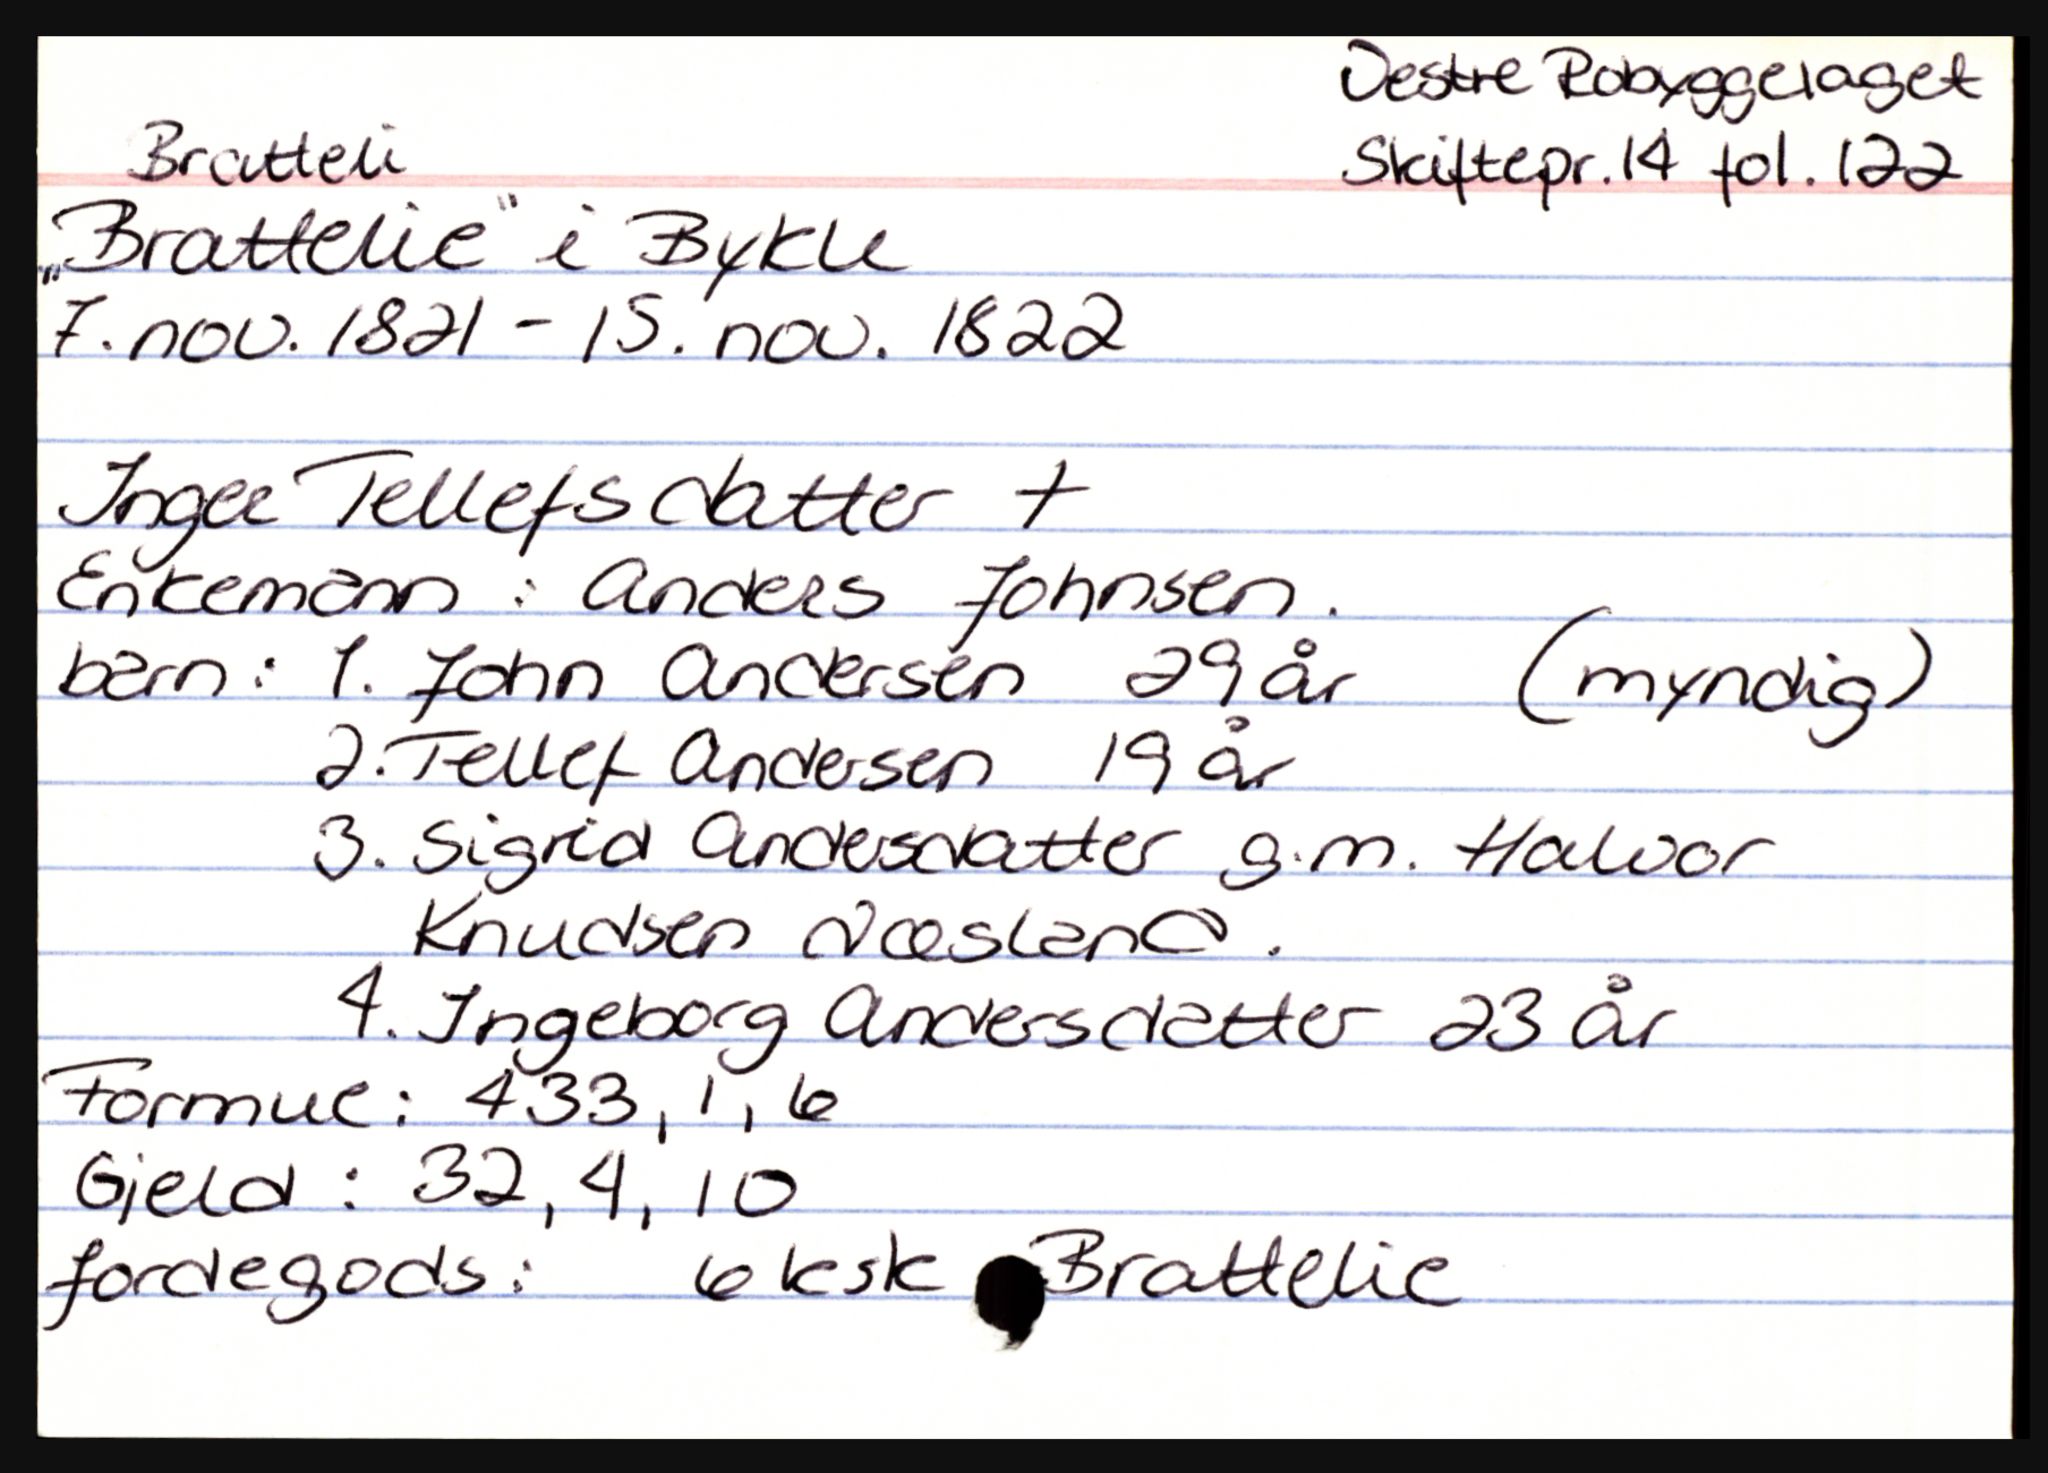 Vestre Robyggelaget
Bratteli
Skiftepr. 14 fol. 122
„Brattelie" i Bykle
7. nov. 1821 - 15. nov. 1822
Ingee Tellefsdatter +
Enkemann : Anders Johnsen.
barn : 1. John Andersen 29 år (myndig)
2. Tellef Andersen 19 år
3. Sigrid Andersdatter g.m. Halvor
Knudsen Næsland.
4. Ingeborg Andersdatter 23 år
Formue : 433, 1, 6
Gjeld : 32, 4, 10
fordegods : 6 ksk Brattelie